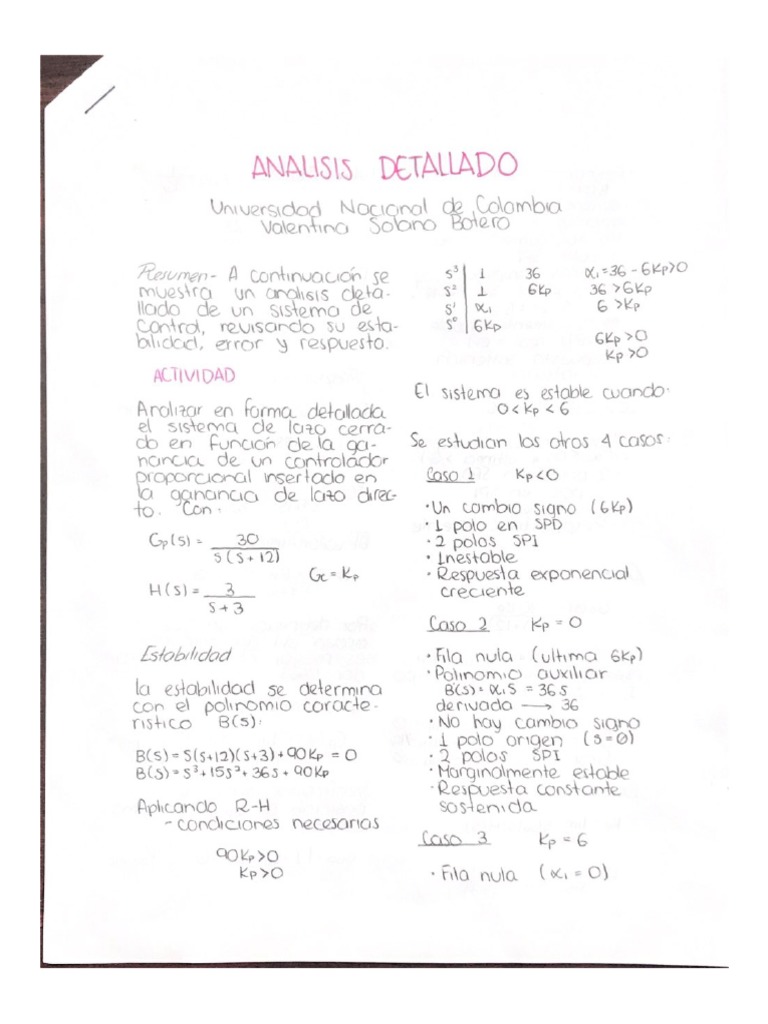 ANALISIS DETALLADO
Universidad Nacional de Colombia
Valentina Solano Botero
Resumen- A continuación se
muestra un analisis deta-
llado de un sistema de
control, revisando su esta-
bilidad, error y respuesta.
ACTIVIDAD
Analizar en forma detallada
el sistema de lazo cerra-
do en función de la ga-
nancia de un controlador
proporcional insertado en
la ganancia de lazo direc-
to. Con:
Gp(s) = 30 / s(s+12)
Gc = Kp
H(s) = 3 / s+3
Estabilidad
la estabilidad se determina
con el polinomio caracte-
ristico B(s):
B(s) = s(s+12)(s+3) + 90Kp = 0
B(s) = s³ + 15s² + 36s + 90Kp
Aplicando R-H
- condiciones necesarias
90Kp > 0
Kp > 0
s³ | 1 36 α₁ = 36 - 6Kp > 0
s² | 1 6Kp 36 > 6Kp
s¹ | α₁ 6 > Kp
s⁰ | 6Kp
6Kp > 0
Kp > 0
El sistema es estable cuando:
0 < Kp < 6
Se estudian los otros 4 casos:
Caso 1 Kp < 0
• Un cambio signo (6Kp)
• 1 polo en SPD
• 2 polos SPI
• Inestable
• Respuesta exponencial
creciente
Caso 2 Kp = 0
• Fila nula (ultima 6Kp)
• Polinomio auxiliar
B'(s) = α₁s = 36s
derivada → 36
• No hay cambio signo
• 1 polo origen (s=0)
• 2 polos SPI
• Marginalmente estable
• Respuesta constante
sostenida
Caso 3 Kp = 6
• Fila nula (α₁ = 0)